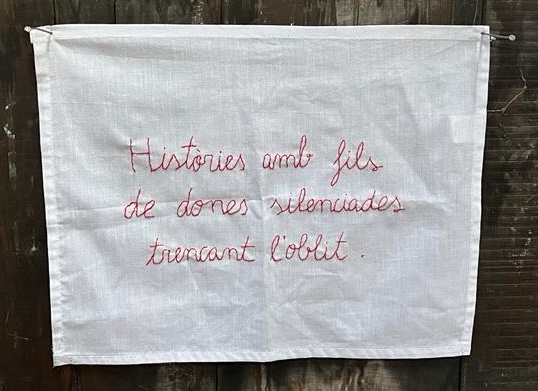 Històries amb fils
de dones silenciades
trencant l'oblit.